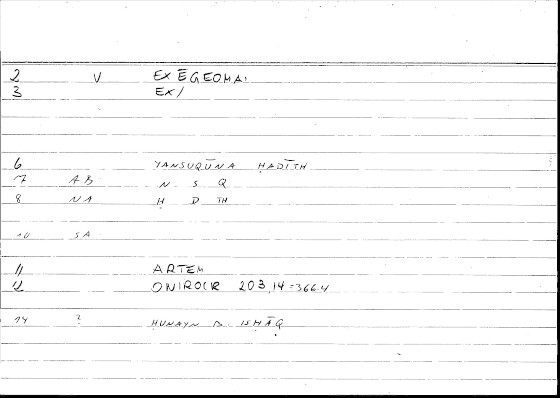 2 V EXĒGEOMAI
3 EX/
6 YANSUQŪNA ḤADĪTH
7 AB N S Q
8 NA Ḥ D TH
10 SA
11 ARTEM
12 ONIROCR 203,14=366.4
14 ? ḤUNAYN B. ISḤĀQ